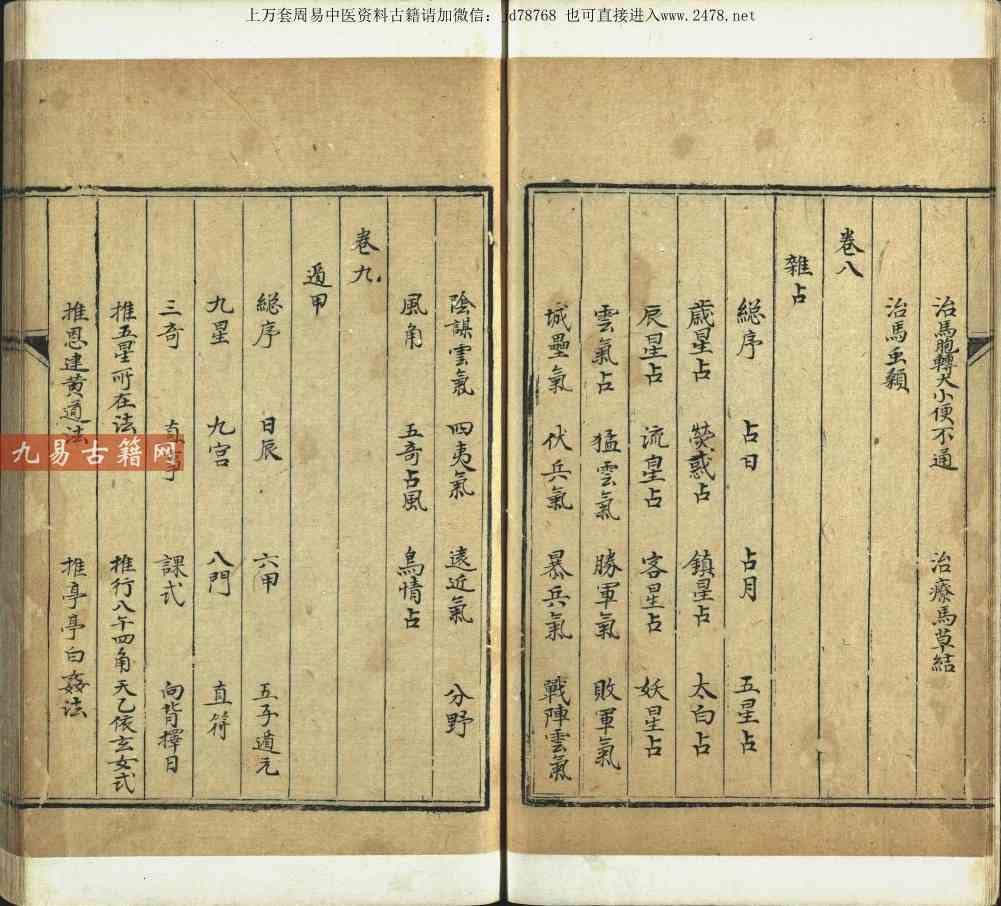 上万套周易中医资料古籍请加微信：jd78768 也可直接进入www.2478.net
治馬胞轉大小便不通 治療馬草結
治馬虫顙
卷八
雜占
緫序 占日 占月 五星占
歲星占 熒惑占 鎮星占 太白占
辰星占 流星占 客星占 妖星占
雲氣占 猛雲氣 勝軍氣 敗軍氣
城壘氣 伏兵氣 暴兵氣 戰陣雲氣
陰謀雲氣 四夷氣 遠近氣 分野
風角 五奇占風 鳥情占
卷九
遁甲
緫序 日辰 六甲 五子遁元
九星 九宮 八門 直符
三奇 課式 向背擇日
推五星所在法 推行八午四角天乙依玄女式
推恩建黃道法 推亭亭白姦法
九易古籍网